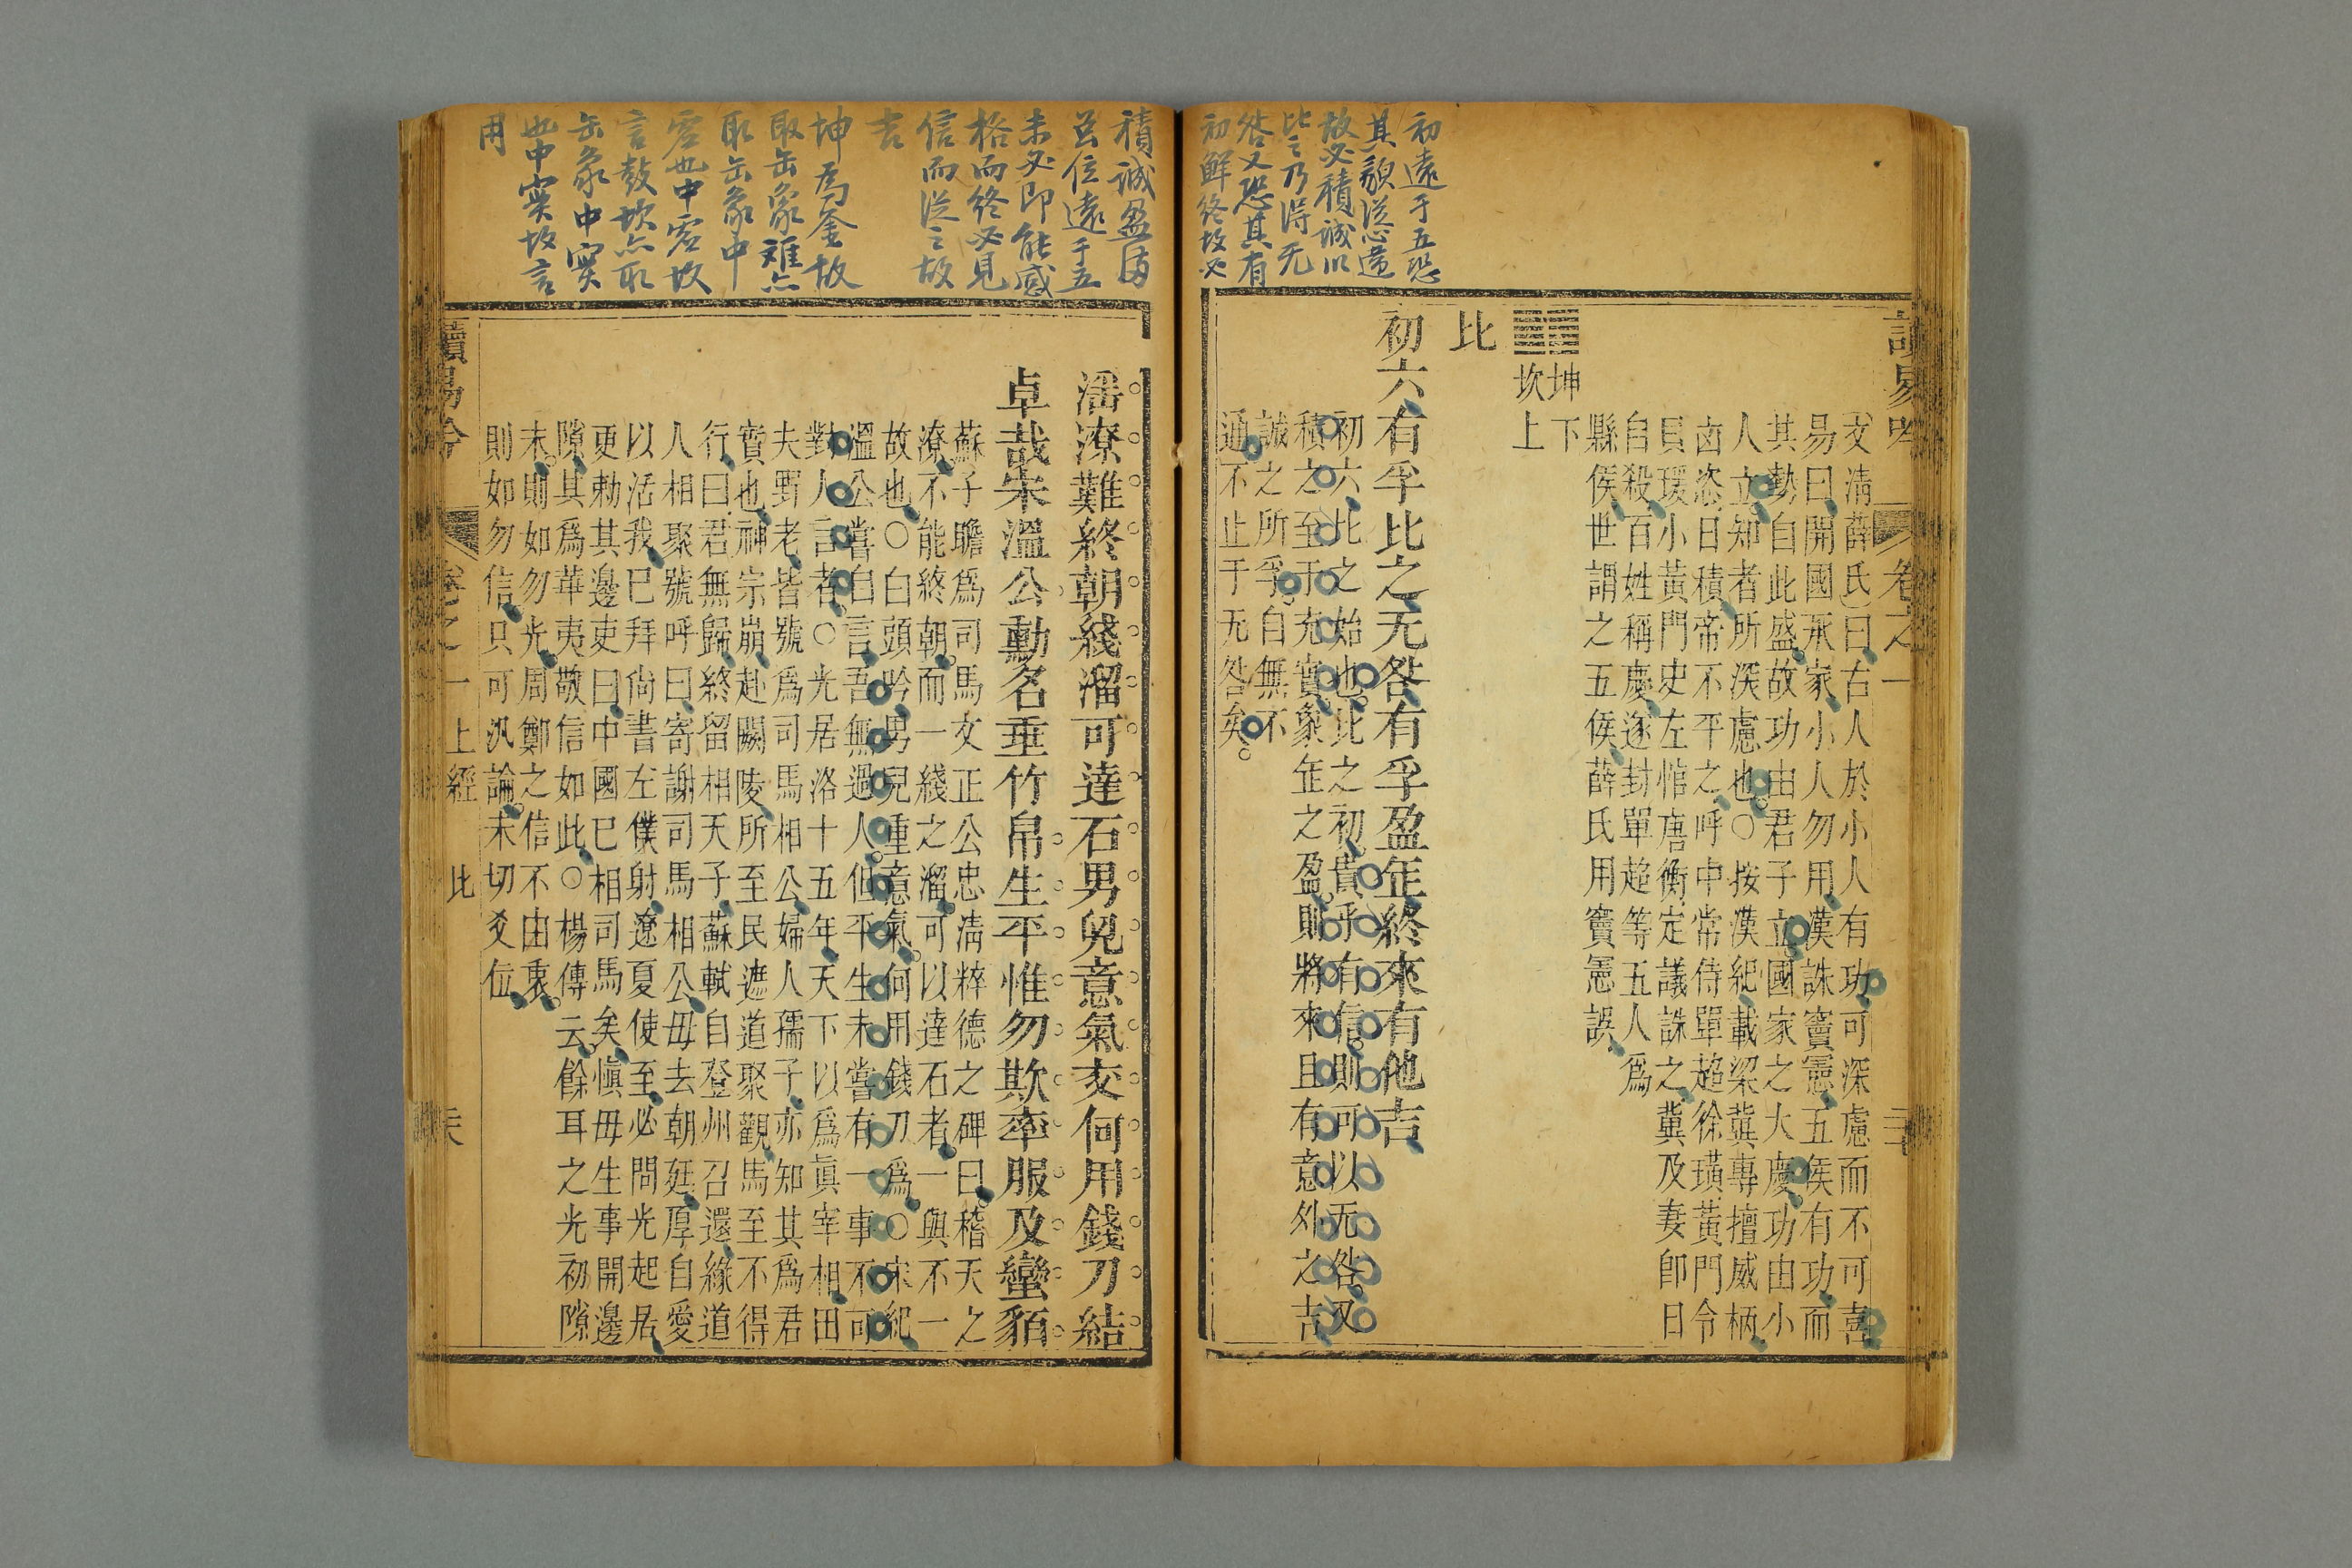 初遠于五恐
其貌從志違
故必積誠以
比之乃得无
咎又恐其有
初鮮終故必
讀易吟
卷之一
文淸薛氏曰古人於小人有功可深慮而不可喜
易曰開國承家小人勿用漢誅竇憲五侯有功而
其勢自此盛故功由君子立國家之大慶功由小
人立知者所深慮也○按漢紀載梁冀專擅威柄
凶恣日積帝不平之呼中常侍單超徐璜黃門令
具瑗小黃門史左悺唐衡定議誅之冀及妻卽日
自殺百姓稱慶逐封單超等五人爲
縣侯世謂之五侯薛氏用竇憲誤
坤下
坎上
比
初六有孚比之无咎有孚盈缶終來有他吉
初六比之始也比之初貴乎有信則可以无咎又
積之至于充實象缶之盈則將來且有意外之吉
誠之所孚自無不
通不止于无咎矣
積誠盈滿
並位遠于五
未必即能感
格而終必見
信而從之故
吉
坤爲釜故
取缶象離亦
取缶象中
虛也中虛故
言鼓坎亦取
缶象中實
也中實故言
用
潘潦難終朝綫溜可達石男兒意氣交何用錢刀結
卓哉宋溫公勳名垂竹帛生平惟勿欺率服及蠻貊
蘇子瞻爲司馬文正公忠淸粹德之碑曰稽天之
潦不能終朝而一綫之溜可以達石者一與不一
故也○白頭吟男兒重意氣何用錢刀爲○宋紀
溫公嘗自言吾無過人但平生未嘗有一事不可
對人言者○光居洛十五年天下以爲眞宰相田
夫野老皆號爲司馬相公婦人孺子亦知其爲君
實也神宗崩赴闕陵所至民遮道聚觀馬至不得
行曰君無歸終留相天子蘇軾自登州召還緣道
人相聚號呼曰寄謝司馬相公毋去朝廷厚自愛
以活我已拜尙書左僕射遼夏使至必問光起居
更勅其邊吏曰中國已相司馬矣愼毋生事開邊
隙其爲華夷敬信如此○楊傳云餘耳之光初隙
末則如勿光周鄭之信不由衷
則如勿信只可汎論未切爻位
讀易吟
卷之一
上經
比